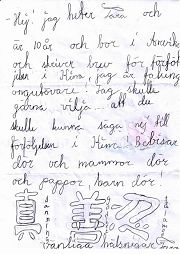 -Hej! jag heter Sara och
är 10 år och bor i
och skriver brev för förföl
jden i Kina, jag är falung
ongutövare! Jag skulle
gärna vilja att du
skulle kunna säga nej till
förföljden i Kina! Bebisar
dör och mammor dör
och pappor, barn dör!
真 善 忍